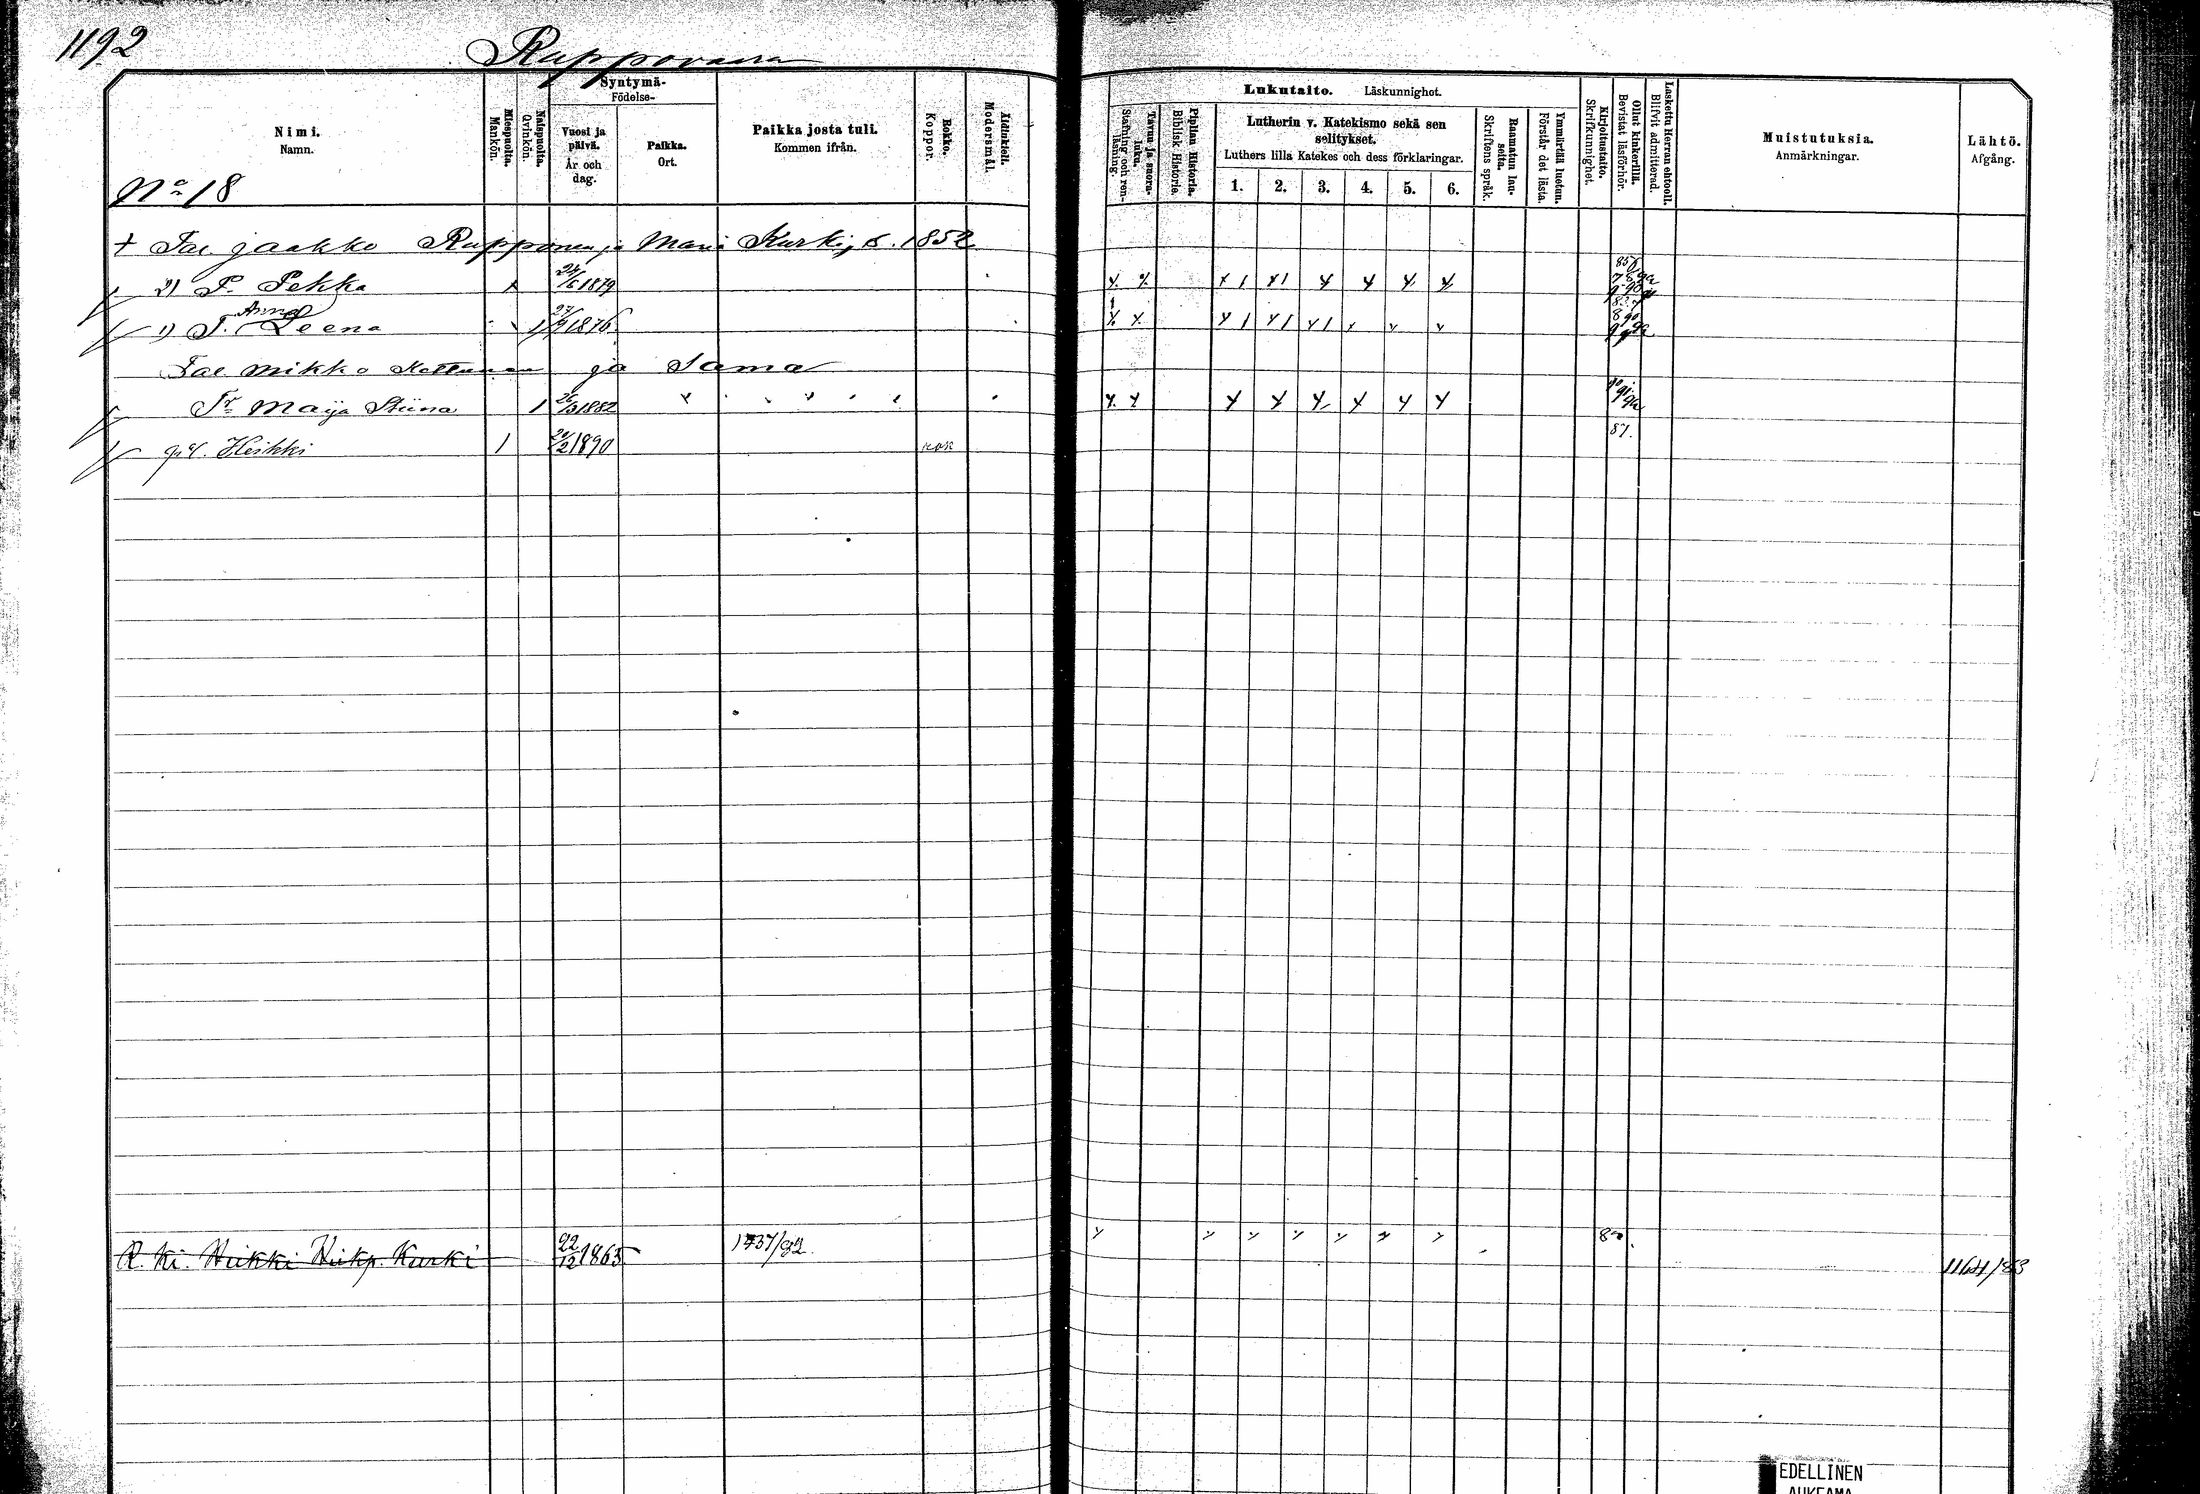 1192
Ruppovaara
Nimi.
Namn.
Miespuolta.
Mankön.
Naispuolta.
Qvinkön.
Syntymä-
Födelse-
Vuosi ja päivä.
År och dag.
Paikka.
Ort.
Paikka josta tuli.
Kommen ifrån.
Rokko.
Koppor.
Äidinkieli.
Modersmål.
Lukutaito. Läskunnighet.
Tavuu ja suora-luku.
Stafning och ren-läsning.
Piplian Historia.
Biblisk Historie.
Lutherin v. Katekismo sekä sen selitykset.
Luthers lilla Katekes och dess förklaringar.
1. 2. 3. 4. 5. 6.
Raamatun lauseita.
Skriftens språk.
Ymmärtää luetun.
Förstår det lästa.
Kirjoitustaito.
Skrifkunnighet.
Ollut kinkerillä.
Bevistat läsförhör.
Laskettu Herran ehtooll.
Blifvit admitterad.
Muistutuksia.
Anmärkningar.
Lähtö.
Afgång.
No 18
+ Tal. Jaakko Rupponen ja Maria Kurki, s. 1852
2) P. Pekka 1 24/5 1879
1) T. Anna Leena 1 27/9 1876
Tal. Mikko Kettunen ja sama
Tr Maija Stiina 1 26/3 1882
Heikki 1 20/2 1890 rok
87.
R. ki. Heikki Heikp. Kurki 22/12 1865 1737/82. 1161/83
EDELLINEN
AUKEAMA